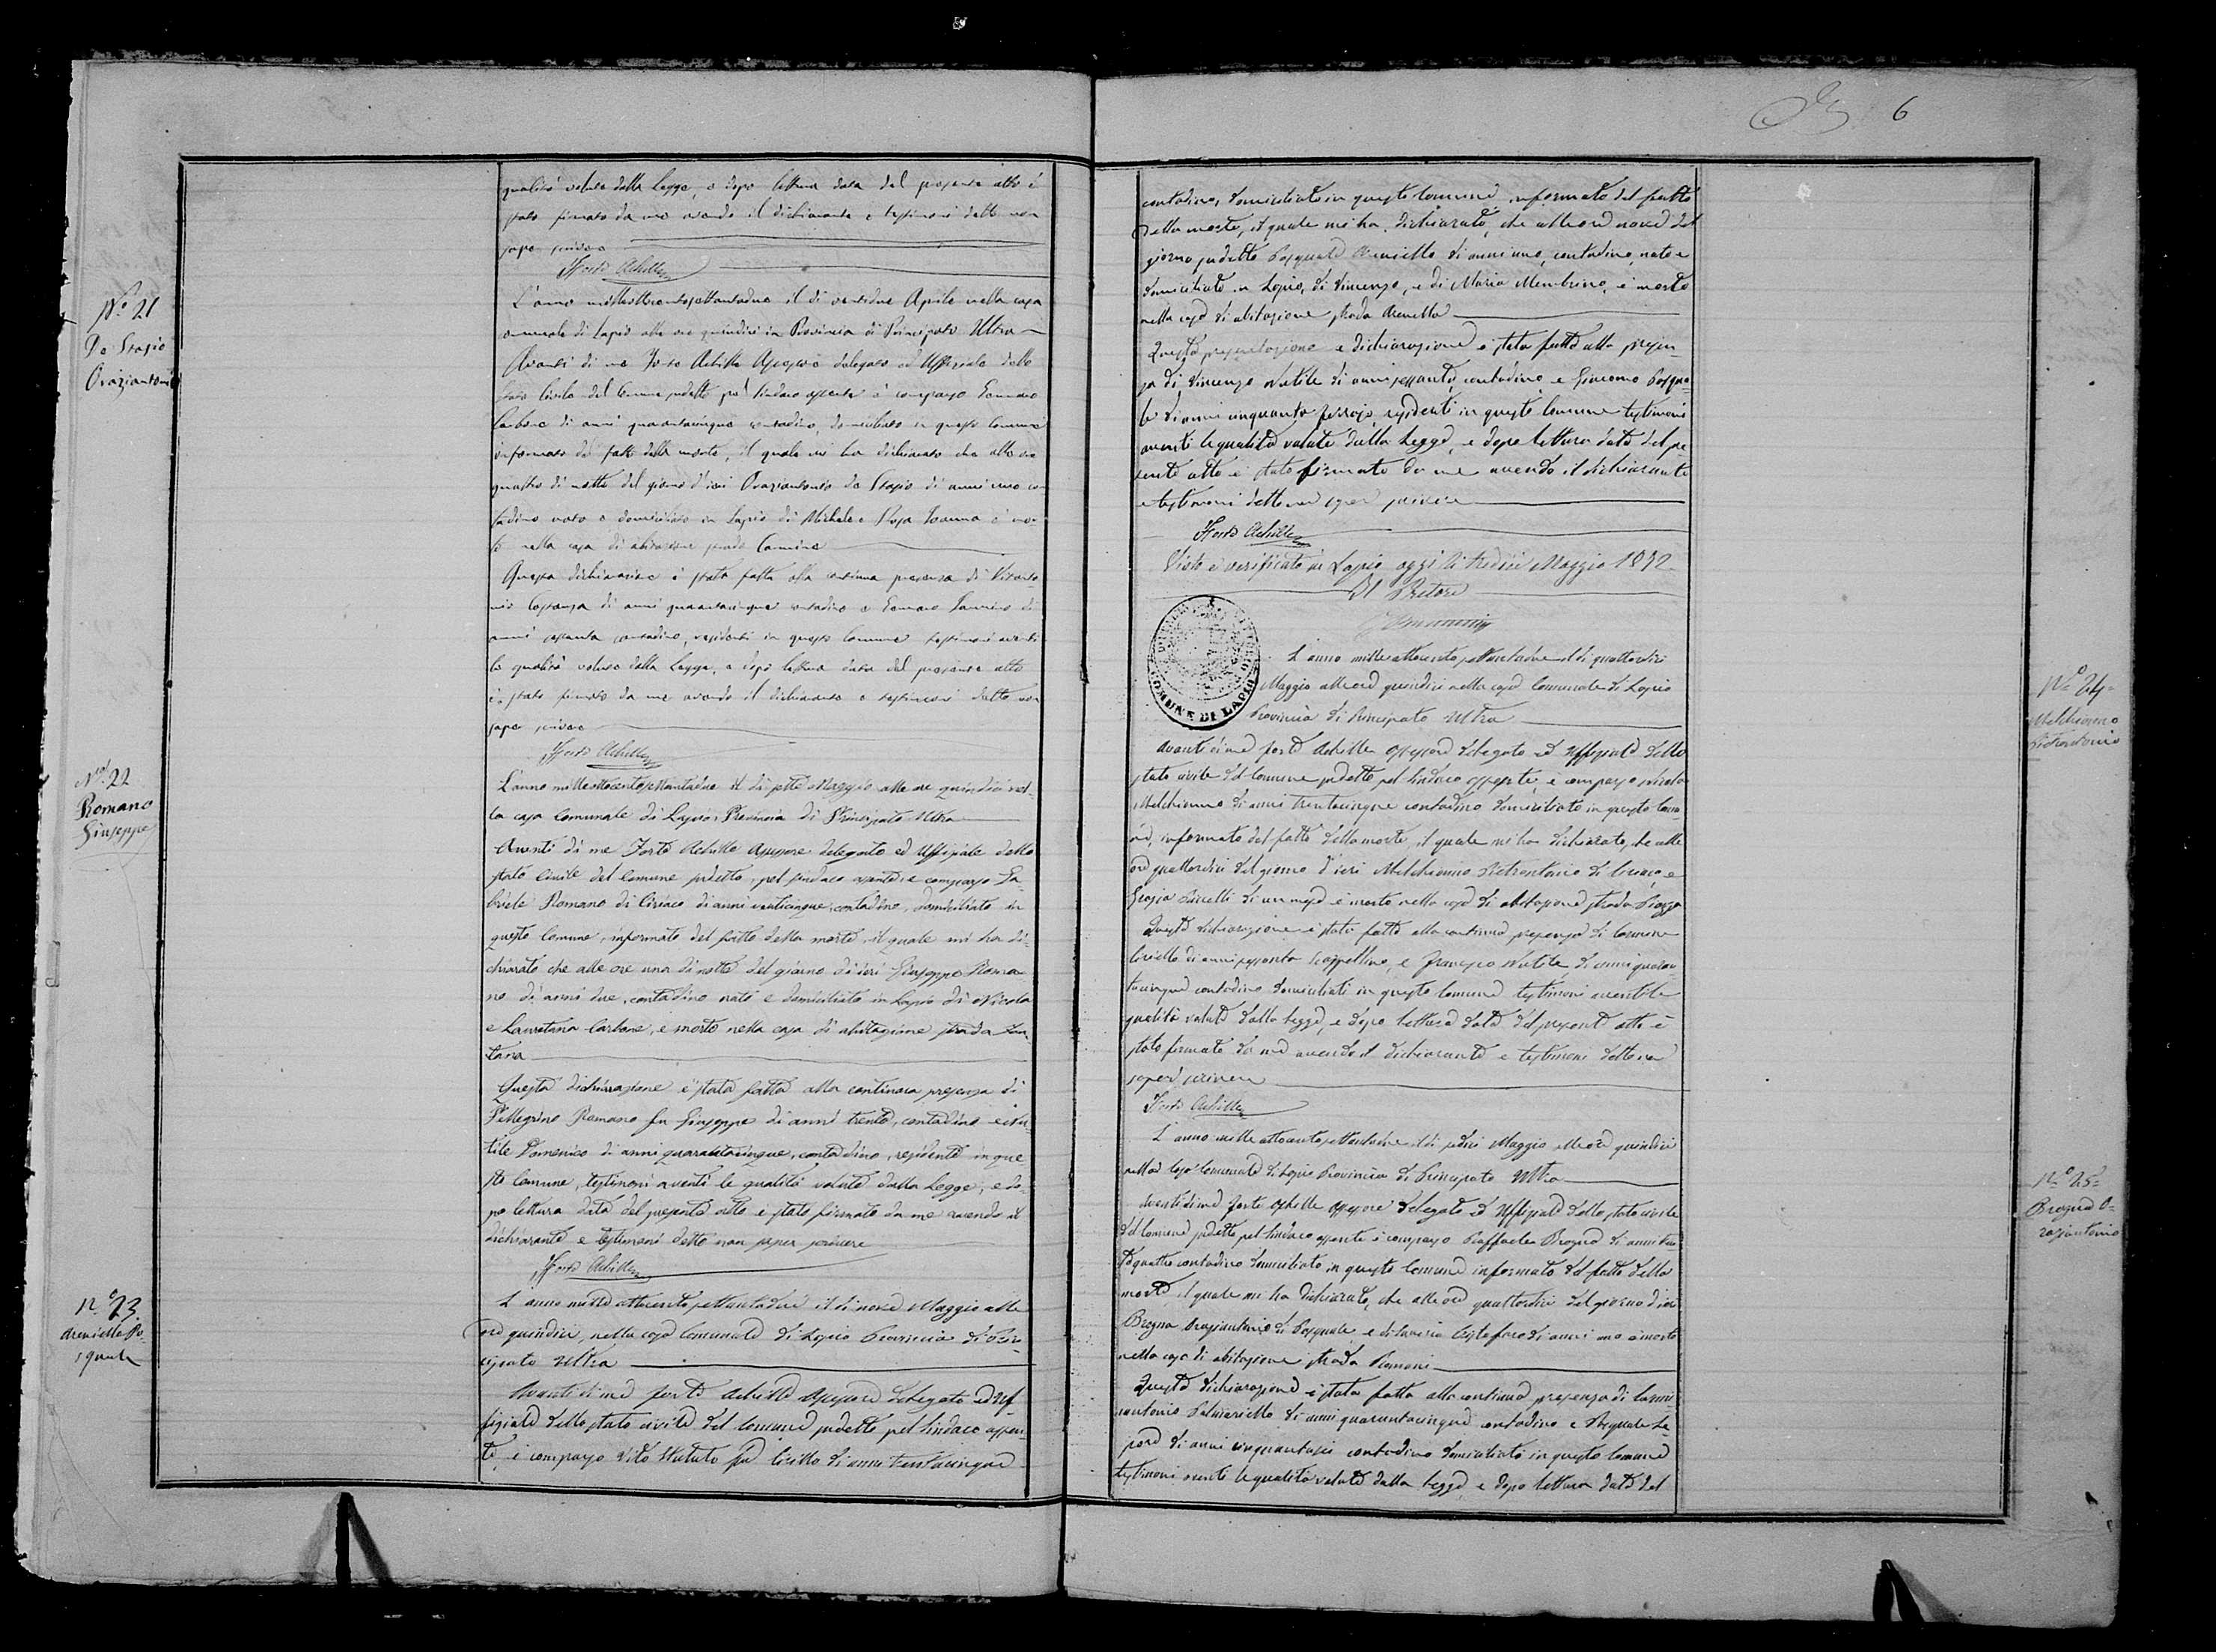 6
qualità volute dalla Legge, e dopo lettura data del presente atto è
stato firmato da me avendo il dichiarante e testimoni detto non
saper scrivere
Forte Achille
N.o 21
De Stasio
Oraziantonio
L'anno milleottocentosettantadue il dì ventidue Aprile nella casa
comunale di Lapio alle ore quindici in Provincia di Principato Ultra
Avanti di me Forte Achille Assessore delegato ed Uffiziale dello
stato Civile del Comune sudetto pel Sindaco assente è comparso Gennaro
Carbone di anni quarantacinque contadino, domiciliato in questo Comune
informato del fatto della morte, il quale mi ha dichiarato che alle ore
quattro di notte del giorno d'ieri Oraziantonio de Stasio di anni uno con-
tadino nato e domiciliato in Lapio di Michele e Rosa Ioanna è mor-
to nella casa di abitazione strada
Questa dichiarazione è stata fatta alla continua presenza di Vitanto-
nio di anni quarantacinque contadino e Gennaro di
anni sessanta contadino, residenti in questo Comune testimoni aventi
le qualità volute dalla Legge, e dopo lettura data del presente atto
è stato firmato da me avendo il dichiarante e testimoni detto non
saper scrivere
Forte Achille
N.o 22
Romano
Giuseppe
L'anno milleottocentosettantadue il dì sette Maggio alle ore quindici nel-
la casa Comunale di Lapio Provincia di Principato Ultra
Avanti di me Forte Achille Assessore delegato ed Uffiziale dello
stato Civile del Comune sudetto, pel sindaco assente, è comparso Ga-
briele Romano di Ciriaco di anni venticinque, contadino, domiciliato in
questo Comune, informato del fatto della morte, il quale mi ha di-
chiarato che alle ore una di notte del giorno di ieri Giuseppe Roma-
no di anni due, contadino nato e domiciliato in Lapio di Nicola
e Lauretana Carbone, è morto nella casa di abitazione strada Fon-
tana
Questa dichiarazione è stata fatta alla continova presenza di
Pellegrino Romano fu Giuseppe di anni trenta, contadino e Nu-
tile Domenico di anni quarantacinque, contadino, residenti in que-
sto Comune, testimoni aventi le qualità volute dalla Legge, e do-
po lettura data del presente atto è stato firmato da me avendo il
dichiarante e testimoni detto non saper scrivere
Forte Achille
N.o 23
Areniello Pa-
squale
L'anno mille ottocento settantadue il dì nove Maggio alle
ore quindici, nella casa Comunale di Lapio Provincia di Prin-
cipato Ultra
Avanti di me Forte Achille Assessore delegato ed Uf-
fiziale dello stato civile del Comune sudetto pel Sindaco assen-
te, è comparso Vito di anni trentacinque
contadino, domiciliato in questo Comune, informato del fatto
della morte, il quale mi ha dichiarato, che alle ore nove del
giorno sudetto Pasquale Areniello di anni uno, contadino, nato e
domiciliato in Lapio, di Vincenzo, e di Maria Membrino, è morto
nella casa di abitazione strada Arenella
Questa presentazione e dichiarazione è stata fatta alla presen-
za di Vincenzo Nutile di anni sessanta, contadino e Giacomo Pasqua-
le di anni cinquanta residenti in questo Comune testimoni
aventi le qualità volute dalla Legge, e dopo lettura data del pre-
sente atto è stato firmato da me avendo il dichiarante
e testimoni detto non saper scrivere
Forte Achille
Visto e verificato in Lapio oggi li tredici Maggio 1872
Il Pretore
COMUNE DI LAPIO
N.o 24
Melchionno
Pietrantonio
L'anno mille ottocento settantadue il dì quattordici
Maggio alle ore quindici nella casa Comunale di Lapio
Provincia di Principato Ultra
Avanti di me Forte Achille Assessore delegato ed Uffiziale dello
stato civile del Comune sudetto pel Sindaco assente, è comparso Nicola
Melchionno di anni trentacinque contadino domiciliato in questo Comu-
ne, informato del fatto della morte, il quale mi ha dichiarato, che alle
ore quattordici del giorno d'ieri Melchionno Pietrantonio di Ciriaco, e
Grazia di un mese è morto nella casa di abitazione strada Piazza
Questa dichiarazione è stata fatta alla continua presenza di Carmine
Ciriello di anni sessanta scarpellino, e Francesco Nutile, di anni quaran-
tacinque contadino domiciliati in questo Comune testimoni aventi le
qualità volute dalla Legge, e dopo lettura data del presente atto è
stato firmato da me avendo il dichiarante e testimoni detto non
saper scrivere
Forte Achille
N.o 25
Brogna O-
raziantonio
L'anno mille ottocento settantadue il dì sedici Maggio alle ore quindici
nella casa Comunale di Lapio Provincia di Principato Ultra
Avanti di me Forte Achille Assessore delegato ed Uffiziale dello stato civile
del Comune sudetto pel Sindaco assente è comparso Raffaele Brogna di anni tren-
taquattro contadino domiciliato in questo Comune informato del fatto della
morte il quale mi ha dichiarato, che alle ore quattordici del giorno d'ieri
Brogna Oraziantonio di Pasquale e di Cristofaro di anni uno è morto
nella casa di abitazione strada Romani
Questa dichiarazione è stata fatta alla continua presenza di
Palmariello di anni quarantacinque contadino e Pasquale Le-
pore di anni cinquantasei contadino domiciliati in questo Comune
testimoni aventi le qualità volute dalla Legge, e dopo lettura data del